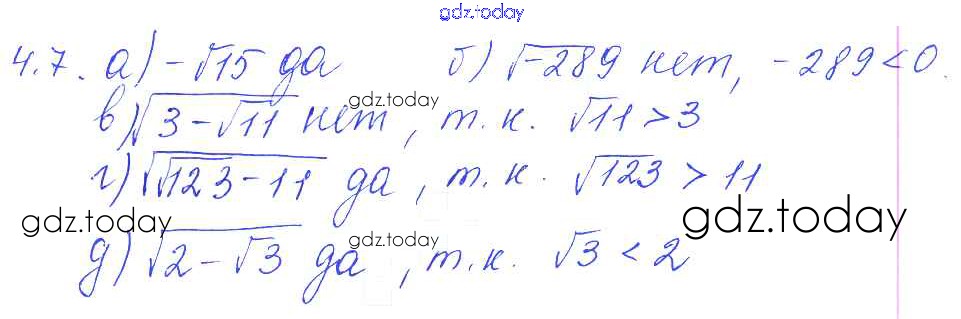 gdz.today
4.7. а) -√15 да б) √-289 нет, -289<0.
в) √(3-√11) нет, т.к. √11>3
gdz.today
г) √(√123-11) да, т.к. √123>11
gdz.today gdz.today
д) √(2-√3) да, т.к. √3<2
gdz.today